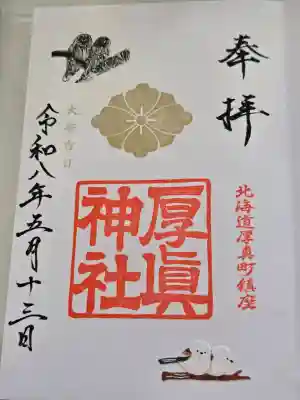 奉拝
北海道厚真町鎮座
厚眞
神社
大安吉日
令和八年五月十三日